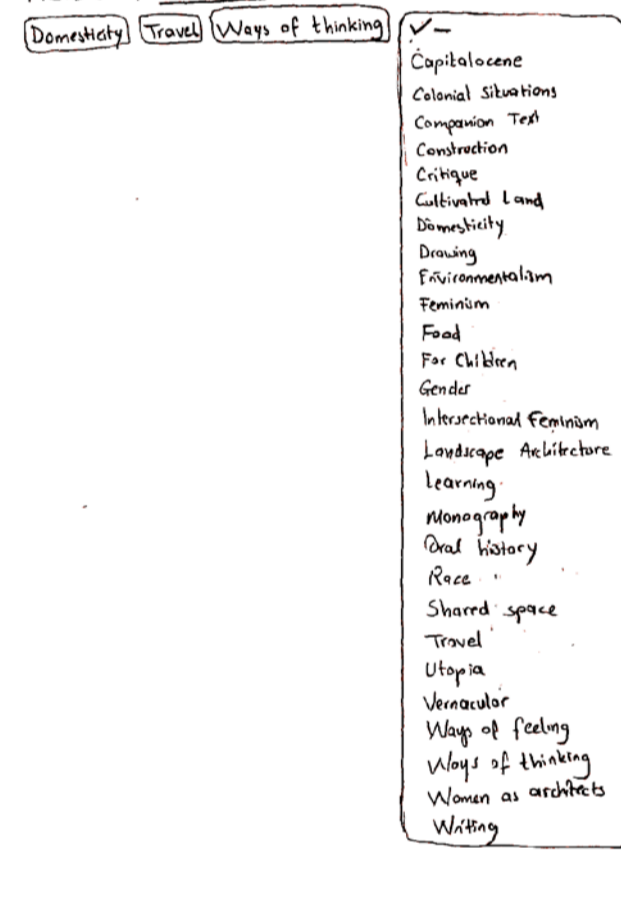 Domesticity Travel Ways of thinking
✓ –
Capitalocene
Colonial Situations
Companion Text
Construction
Critique
Cultivated Land
Domesticity
Drawing
Environmentalism
Feminism
Food
For Children
Gender
Intersectional Feminism
Landscape Architecture
Learning
Monography
Oral history
Race
Shared space
Travel
Utopia
Vernacular
Ways of feeling
Ways of thinking
Women as architects
Writing